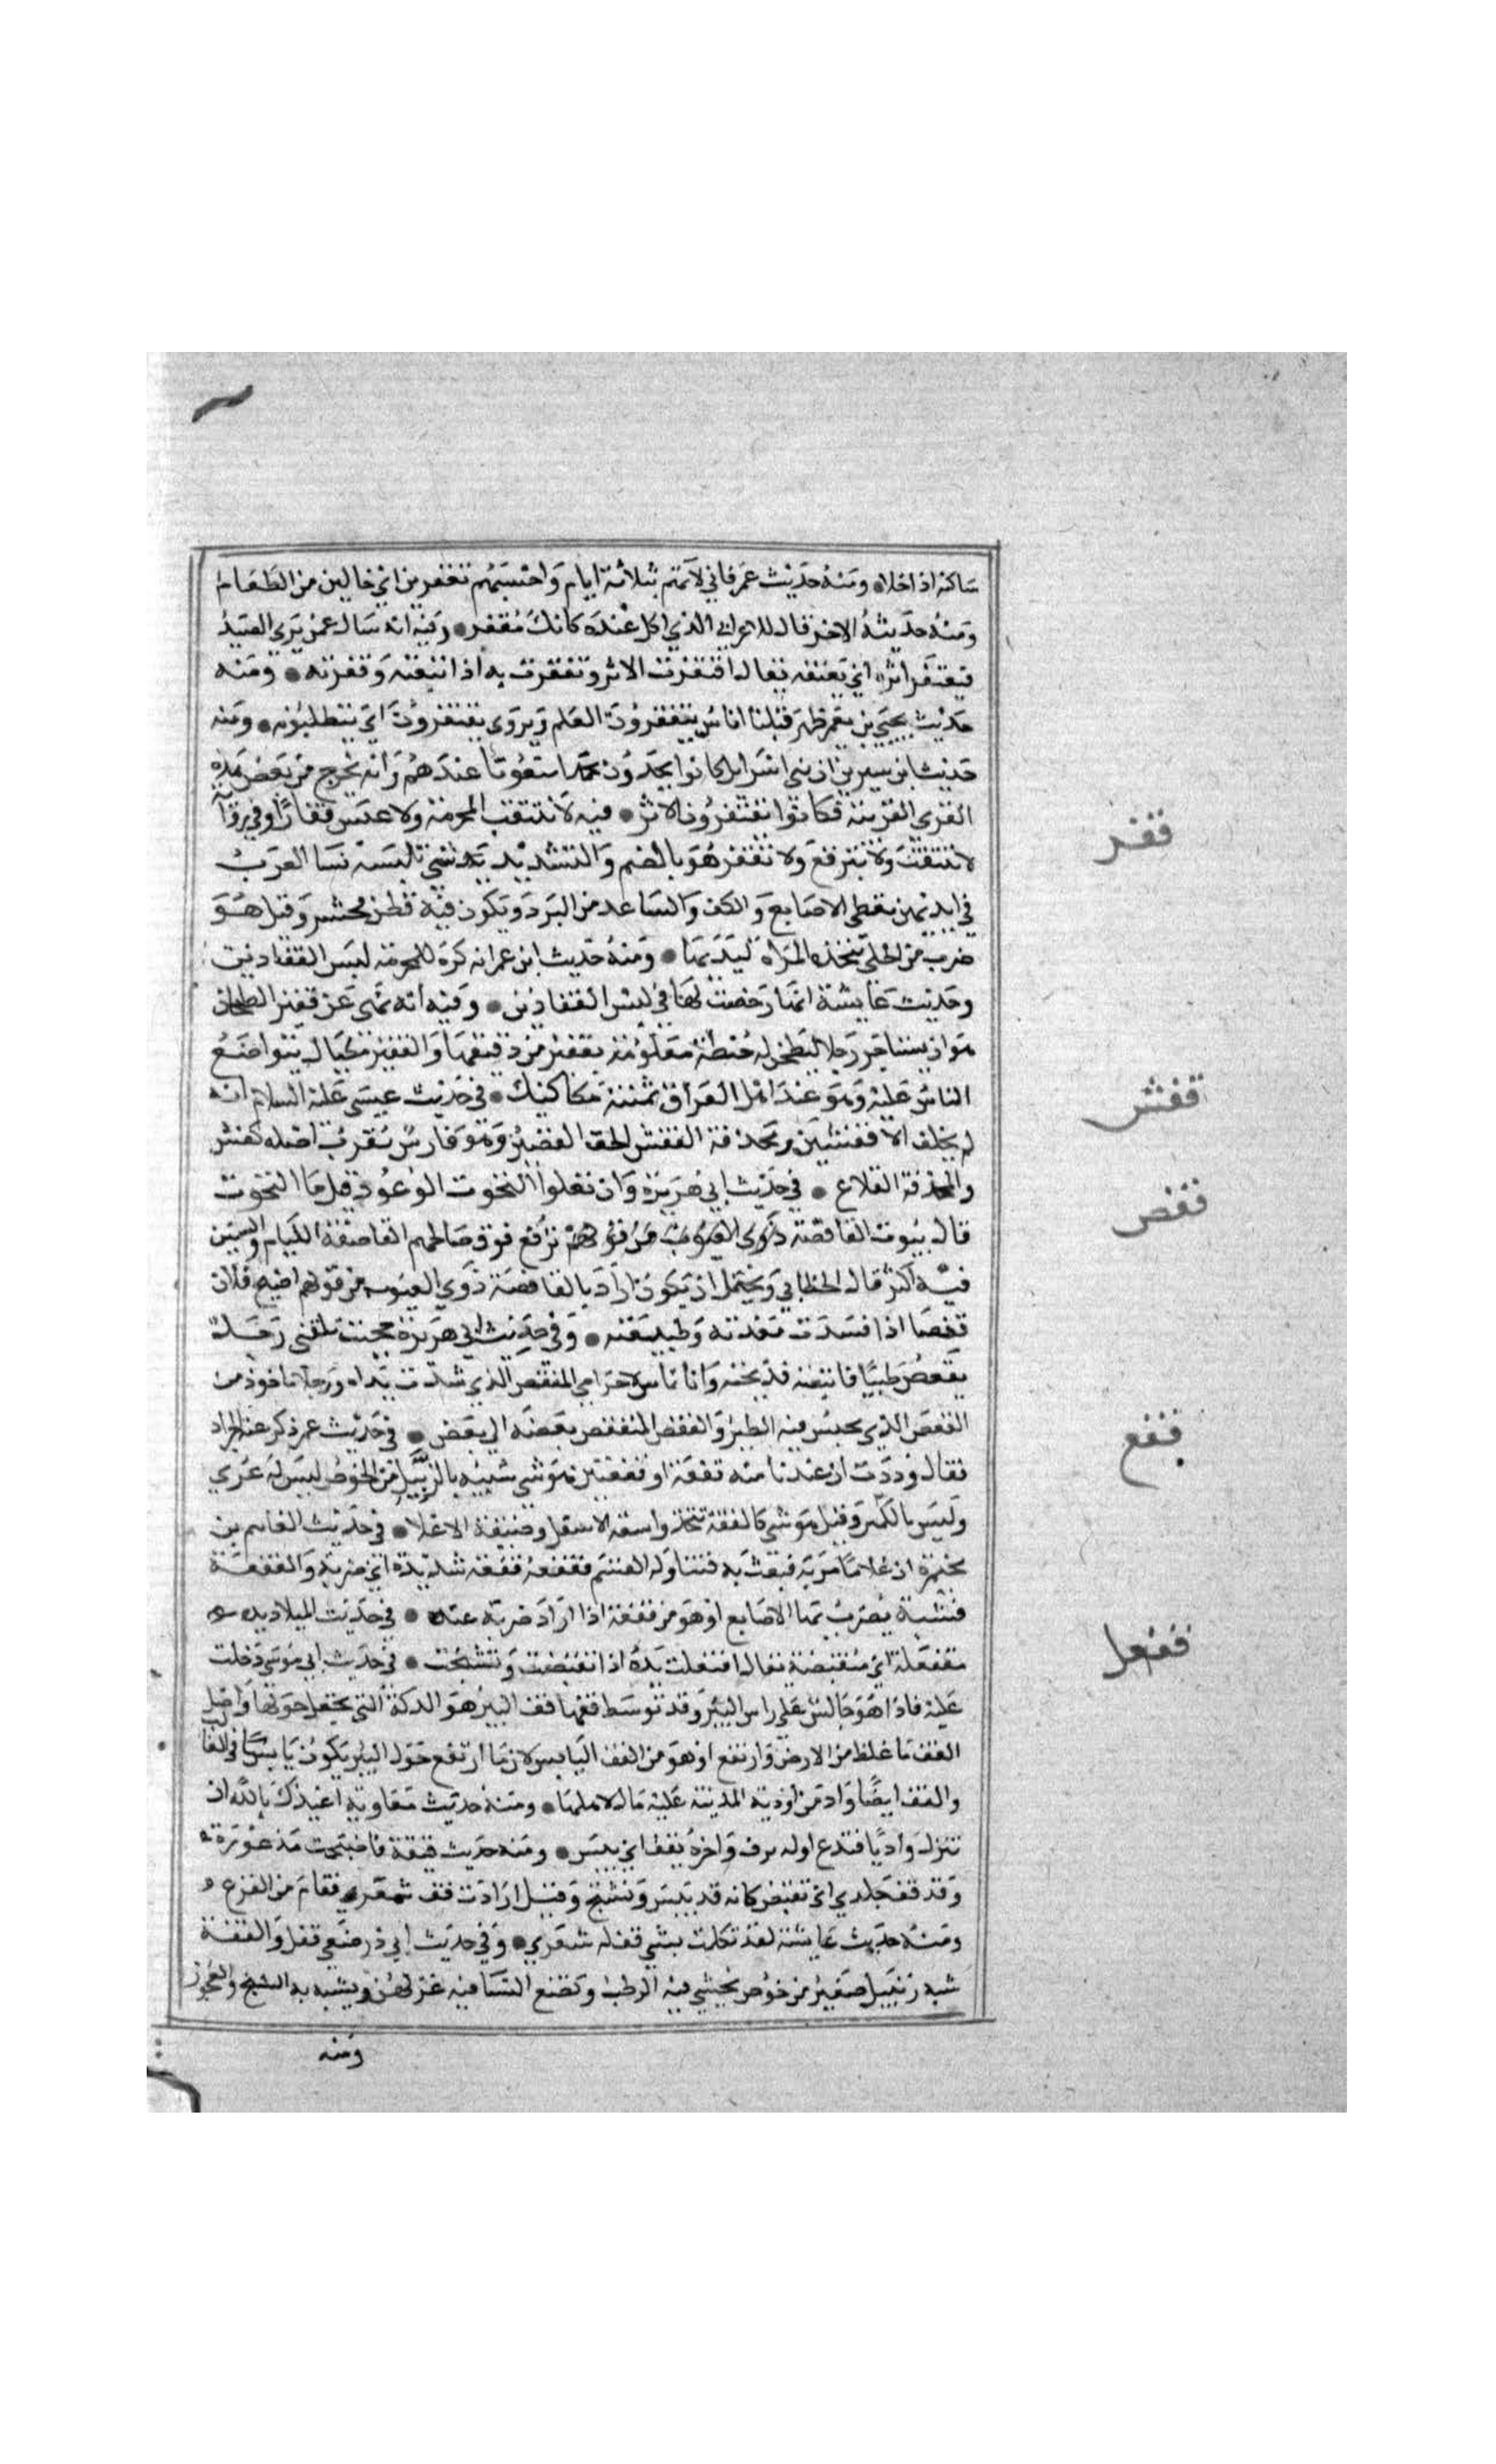 ساكنه اذا خلا ومنه حديث عمر فاني لآتهم ثلاثة ايام واحتسبهم تقفرين اي خالين من الطعام
ومنه حديثه الاخر قال للاعرابي الذي اكل عنده كانك مقفر وفيه انه سال عمن يري الصيد
فيقتفر اثره اي يقتفه يقال اقتفرت الاثر وتقفرت به اذا تتبعته وقفرته ومنه
حديث يحيي بن يعمر ظهر قبلنا اناس يتقفرون العلم ويروي يقتفرون اي يتطلبونه ومنه
حديث ابن سيرين ان بني اسرايل كانوا يجدون محمدا منعوتا عندهم وانه يخرج من بعض هذه
القري القريبة فكانوا يقتفرون الاثر فيه لا تنتقب المحرمة ولا تلبس قفازا وفي رواية
قفز
لا تنتقب ولا تبرقع ولا تقفز هو بالضم والتشديد شي تلبسه نسا العرب
في ايديهن يغطي الاصابع والكف والساعد من البرد ويكون فيه قطن محشو وقيل هو
ضرب من الحلي تتخذه المراه ليديها ومنه حديث ابن عمر انه كره للمحرمة لبس القفازين
وحديث عايشة انها رخصت لها في لبس القفازين وفيه انه نهي عن قفيز الطحان
هو ان يستاجر رجلا ليطحن له حنطة معلومة بقفيز من دقيقها والقفيز مكيال يتواضع
الناس عليه وهو عند اهل العراق ثمنية مكاكيك في حديث عيسي عليه السلام انه
قفش
لم يخلف الا قفشين ومحذفة القفش الخف القصير وهو فارسي معرب اصله كفش
والمحذفة المقلاع في حديث ابي هريرة وان تعلوا التحوت الوعول قيل ما التحوت
قفص
قال بيوت القافصة يرفعون فوق صالحيهم القافصة الليام والسين
فيه اكثر قال الخطابي ويحتمل ان يكون اراد بالقافصة ذوي العيوب من قولهم اصبح فلان
قفصا اذا فسدت معدته وطبيعته وفي حديث ابي هريرة حججت فلقني رجل
مقفص ظبيا فاتبعته فذبحته وانا ناس لاحرامي المقفص الذي شدت يداه ورجلاه ماخوذ من
القفص الذي يحبس فيه الطير والقفص المنقفص بعضه الي بعض في حديث عمر ذكر عنده الجراد
قفع
فقال وددت ان عندنا منه قفعة او قفعتين هو شي شبيه بالزبيل من الخوص ليس له عري
وليس بالكبير وقيل هو شي كالقفة تتخذ واسعة الاسفل وضيقة الاعلا في حديث القاسم بن
مخيمرة ان غلاما مر به فعبث به فتناوله القسم فقفعه قفعة شديدة اي ضربه والقفعة
خشبة يضرب بها الاصابع او هو من قفعة اذا اراد ضربه عنه في حديث الميلاد يد
قفعل
مقفعلة اي متقبضة يقال اقفعلت يده اذا تقبضت وتشنجت في حديث ابي موسي دخلت
عليه فاذا هو جالس علي راس البير وقد توسط قفها قف البير هو الدكة التي تجعل حولها واصل
القف ما غلظ من الارض وارتفع او هو من القف اليابس لان ما ارتفع حول البير يكون يابسا في الغالب
والقف ايضا واد من اودية المدينة عليه مال لاهلها ومنه حديث معاوية اعيذك بالله ان
تنزل واديا فتدع اوله يرف واخره يقف اي ييبس ومنه حديث رقيقة فاصبحت مذعورة
وقد قف جلدي اي تقبض كانه قد يبس وتشنج وقيل ارادت قف شعري فقام من الفزع
ومنه حديث عايشة لقد تكلمت بشي قف له شعري وفي حديث ابي ذر ضعي قفل والقفة
شبه زنبيل صغير من خوص يجتني فيه الرطب وتضع النسا فيه غزلهن ويشبه به الشيخ والعجوز
ومنه